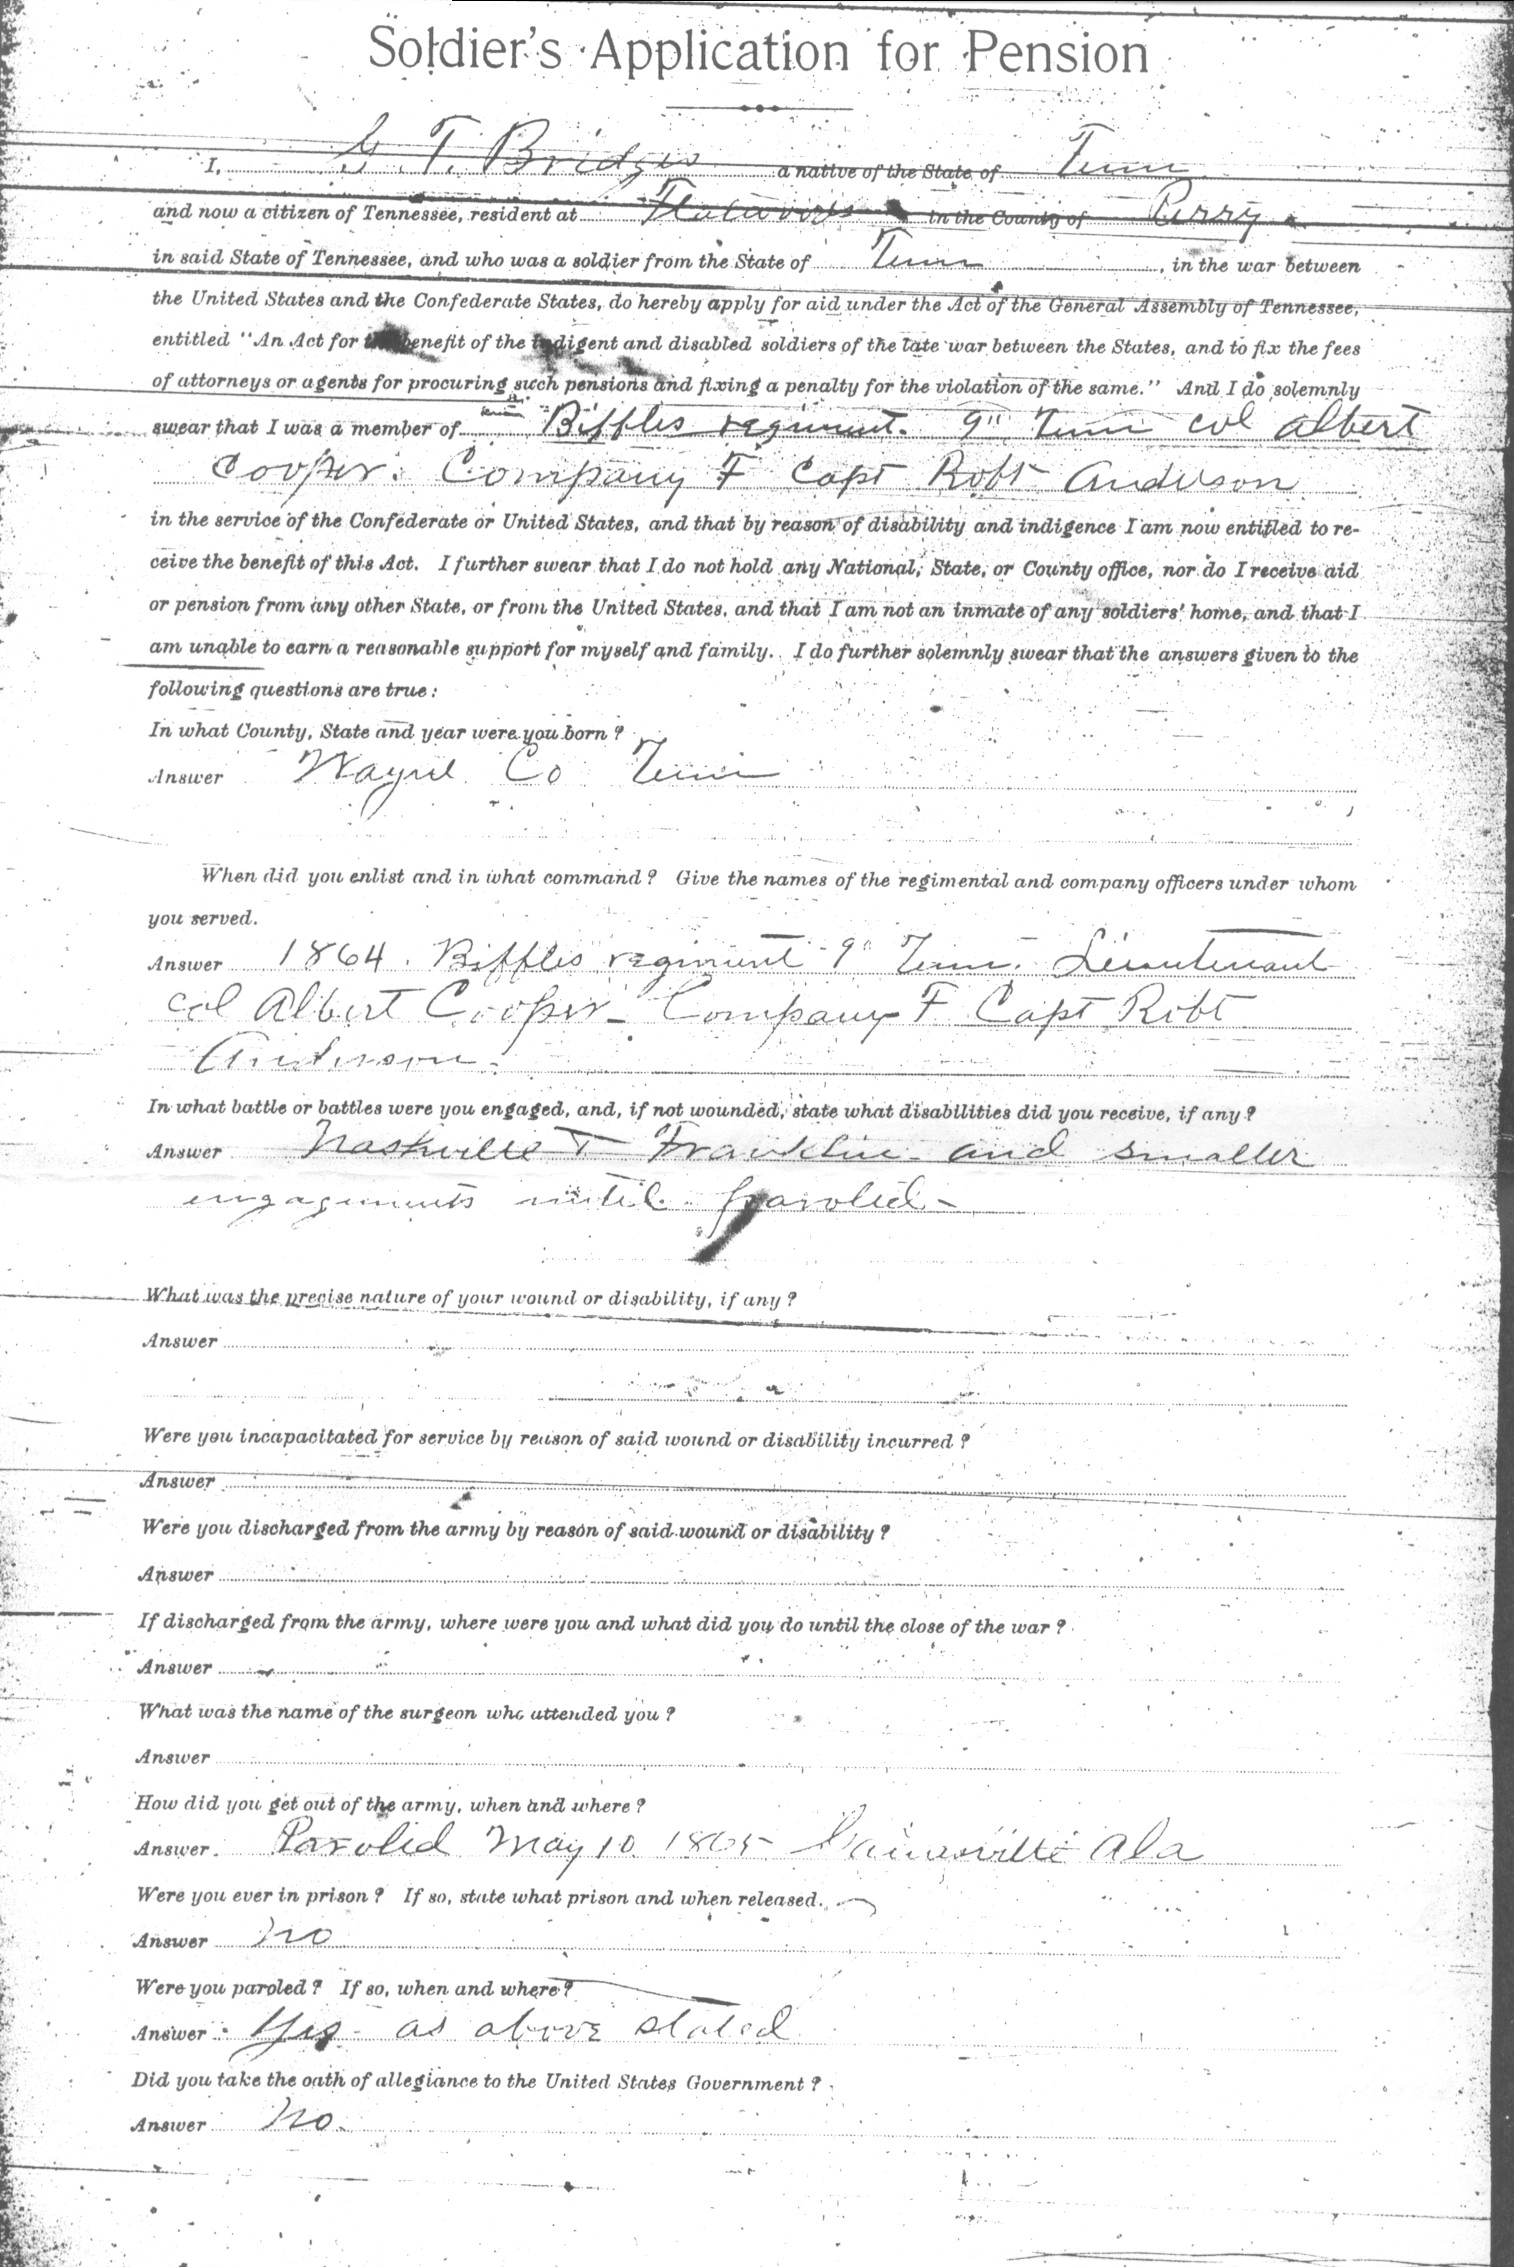 Soldier's Application for Pension
I, G. T. Bridges a native of the State of Tenn
and now a citizen of Tennessee, resident at Flatwoods in the County of Perry
in said State of Tennessee, and who was a soldier from the State of Tenn, in the war between
the United States and the Confederate States, do hereby apply for aid under the Act of the General Assembly of Tennessee,
entitled "An Act for the benefit of the indigent and disabled soldiers of the late war between the States, and to fix the fees
of attorneys or agents for procuring such pensions and fixing a penalty for the violation of the same." And I do solemnly
swear that I was a member of Biffles regiment. 9" Tenn col albert
Cooper. Company F Capt Robt Anderson
in the service of the Confederate or United States, and that by reason of disability and indigence I am now entitled to re-
ceive the benefit of this Act. I further swear that I do not hold any National, State, or County office, nor do I receive aid
or pension from any other State, or from the United States, and that I am not an inmate of any soldiers' home, and that I
am unable to earn a reasonable support for myself and family. I do further solemnly swear that the answers given to the
following questions are true:
In what County, State and year were you born?
Answer Wayne Co Tenn
When did you enlist and in what command? Give the names of the regimental and company officers under whom
you served.
Answer 1864. Biffles regiment 9" Tenn. Lieutenant
col Albert Cooper - Company F Capt Robt
Anderson.
In what battle or battles were you engaged, and, if not wounded, state what disabilities did you receive, if any?
Answer Nashville T Franklin and smaller
engagements until paroled -
What was the precise nature of your wound or disability, if any?
Answer
Were you incapacitated for service by reason of said wound or disability incurred?
Answer
Were you discharged from the army by reason of said wound or disability?
Answer
If discharged from the army, where were you and what did you do until the close of the war?
Answer
What was the name of the surgeon who attended you?
Answer
How did you get out of the army, when and where?
Answer Paroled May 10 1865 Gainesville Ala
Were you ever in prison? If so, state what prison and when released.
Answer no
Were you paroled? If so, when and where?
Answer Yes - as above stated
Did you take the oath of allegiance to the United States Government?
Answer no.